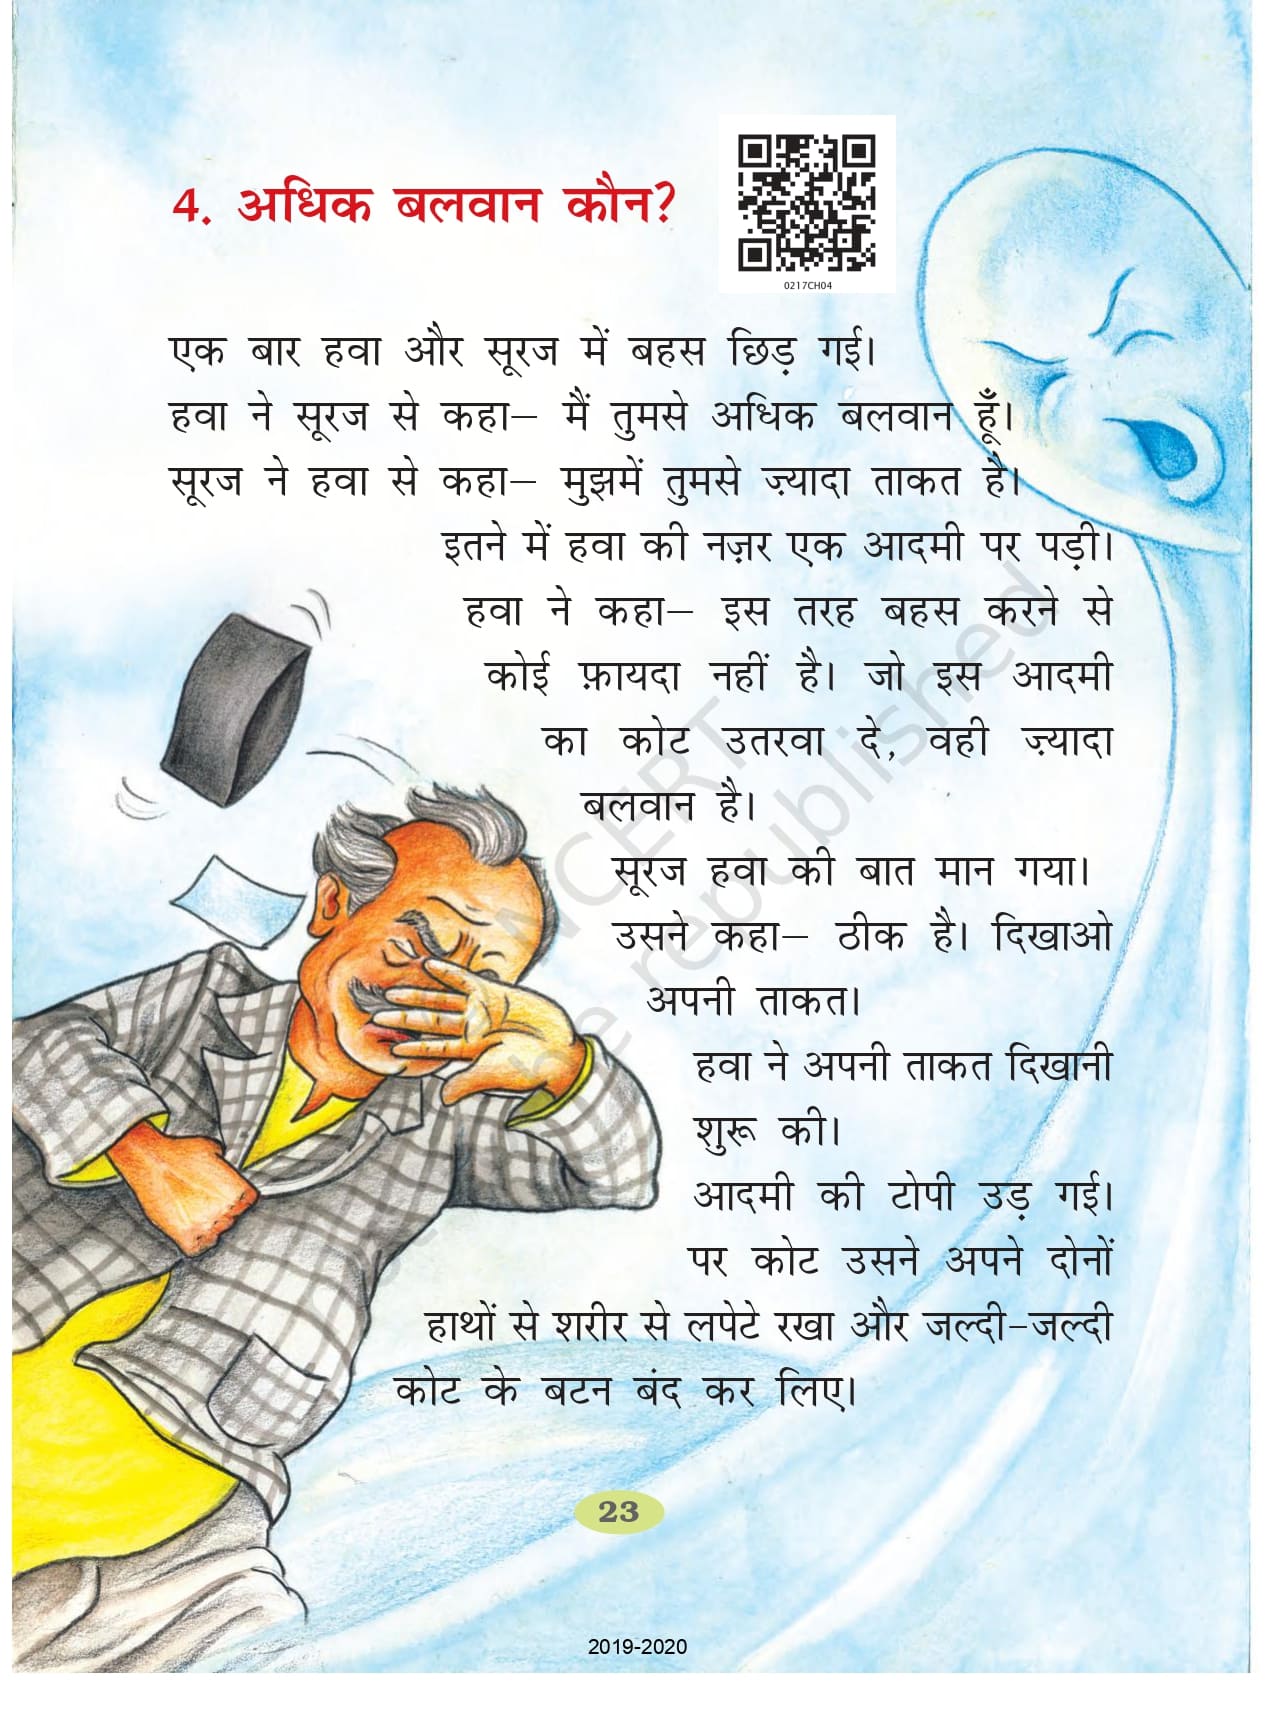 4. अधिक बलवान कौन?
0217CH04
एक बार हवा और सूरज में बहस छिड़ गई।
हवा ने सूरज से कहा– मैं तुमसे अधिक बलवान हूँ।
सूरज ने हवा से कहा– मुझमें तुमसे ज़्यादा ताकत है।
इतने में हवा की नज़र एक आदमी पर पड़ी।
हवा ने कहा– इस तरह बहस करने से
कोई फ़ायदा नहीं है। जो इस आदमी
का कोट उतरवा दे, वही ज़्यादा
बलवान है।
सूरज हवा की बात मान गया।
उसने कहा– ठीक है। दिखाओ
अपनी ताकत।
हवा ने अपनी ताकत दिखानी
शुरू की।
आदमी की टोपी उड़ गई।
पर कोट उसने अपने दोनों
हाथों से शरीर से लपेटे रखा और जल्दी-जल्दी
कोट के बटन बंद कर लिए।
23
2019-2020
NCERT
be republished